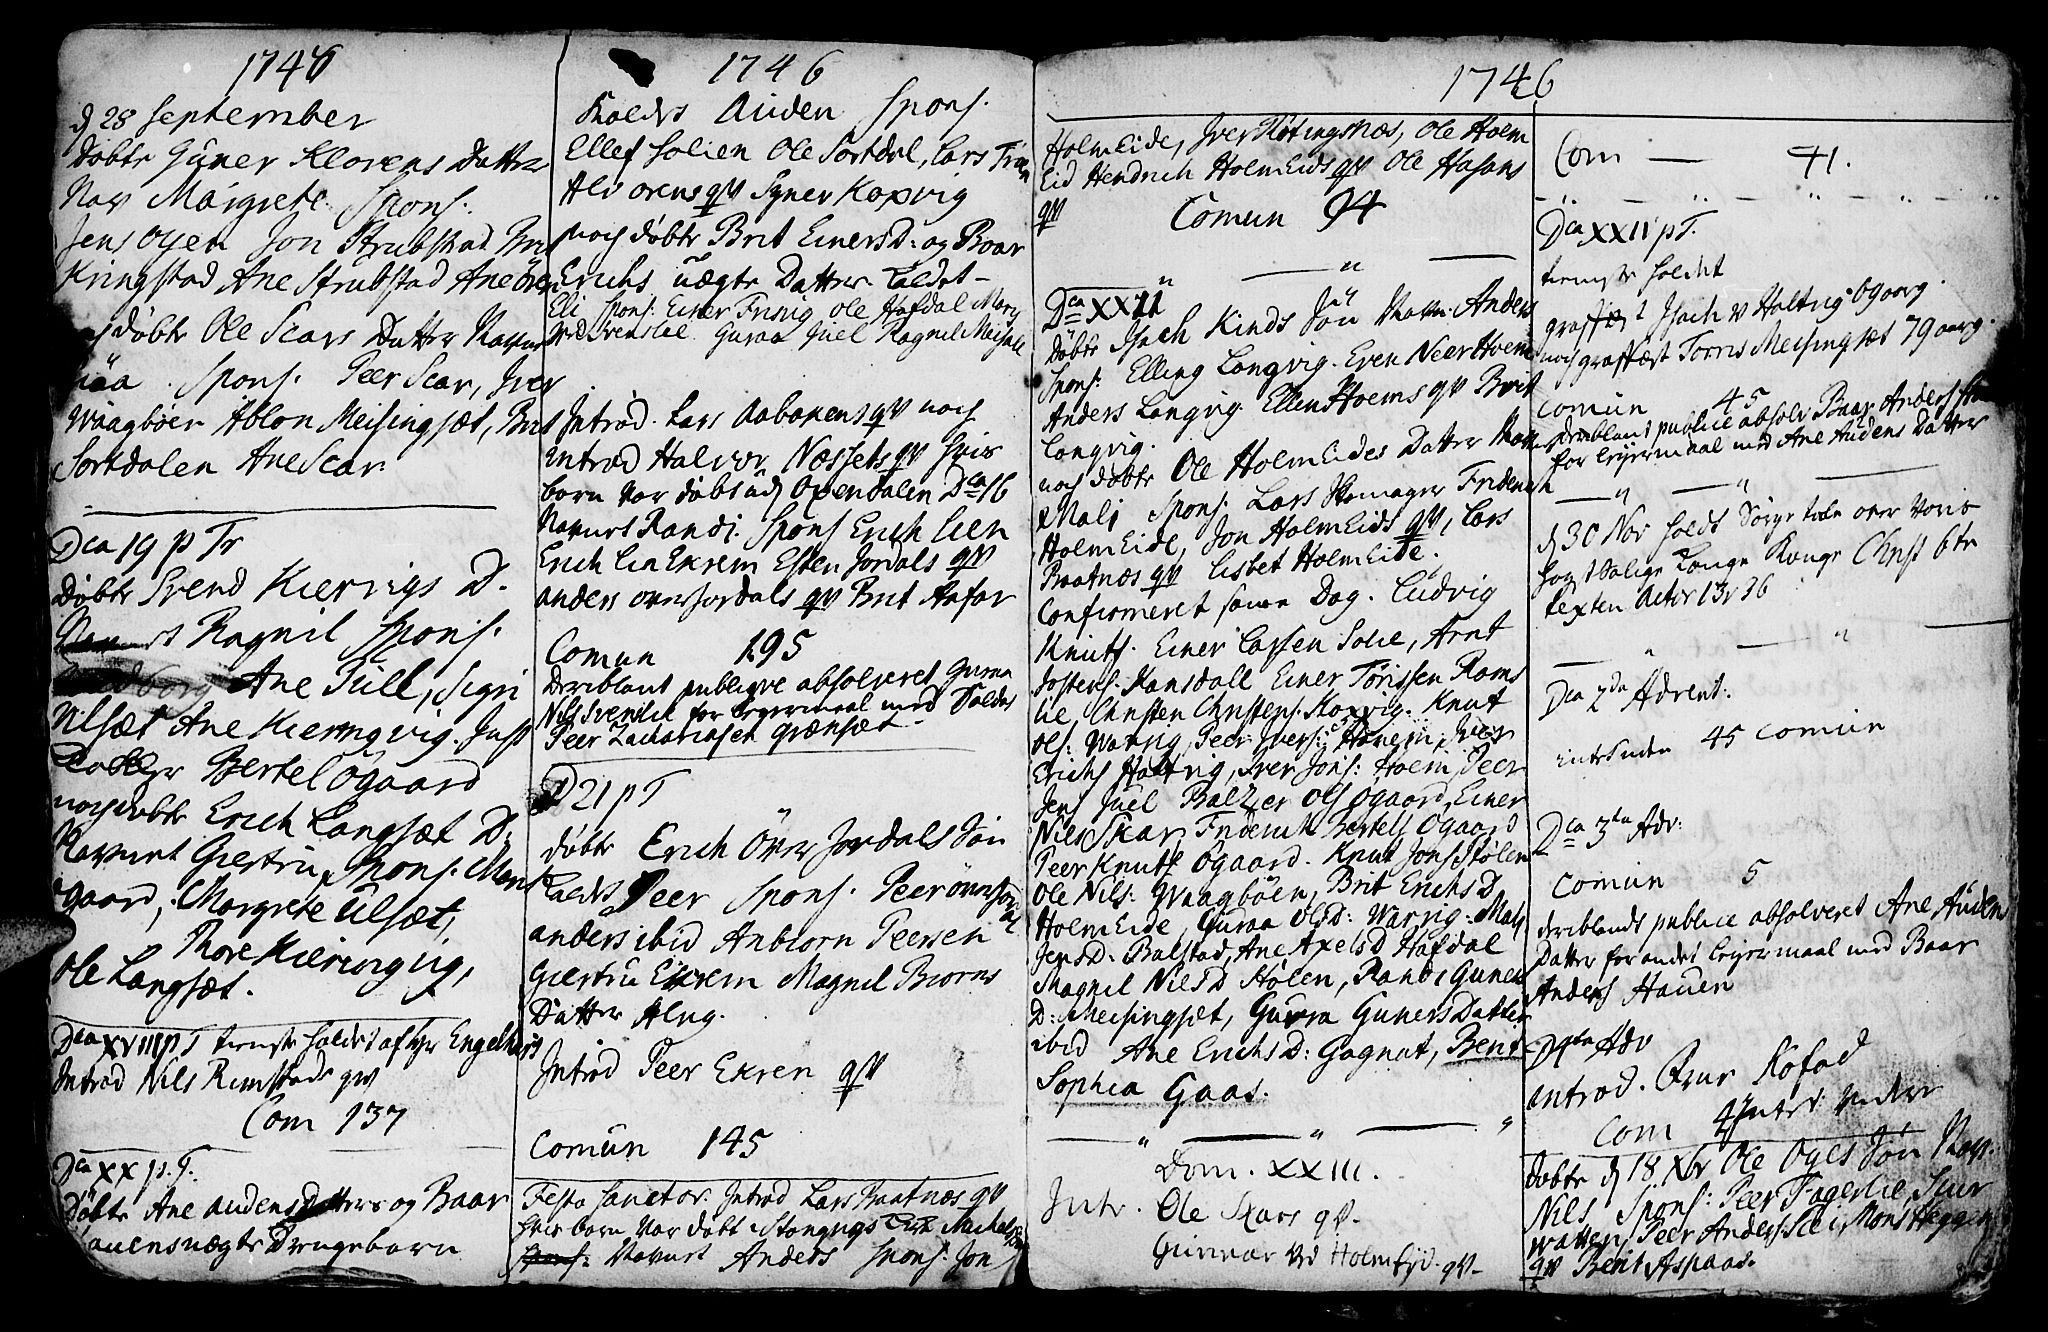 1746
d 28 September
döbte Guner Klovens Datter
Nav Margrete Spons:
Jens Oyen Jon Strubstad
Kringstad Ane Strubstad Ane
döbte Ole Scars Datter Navn
Spons. Peer Scar, Iver
Waagböen Ablon Meisingset, Brit
Sortdalen Ane Scar
Dca 19 p Tr
Döbte Svend Kiervigs D.
Ragnil Spons.
Ane Tüll, Sigri
Nilsæt Ane Kierringvig. Just
Bertel Ogaard
noch döbte Erich Langsæt D.
Navnet Giertru, Spons. Mons
ogaard, Margrete Ulsæt,
Thore Kierringvig,
Ole Langsæt.
Dca XVIII p T tieneste holdet af Hr Engelhart
Introd Nils Rimstads qv
Com 137
Dca XX p. T.
Döbte Ane Audens Datters og Baar
Hauens uægte Drengebarn
1746
Kaldes Auden Spons.
Ellef Solien Ole Sortdal, Lars
Alvorens qv Synev Koxvig
noch döbte Brit Einers D: og Roar
Erichs uægte Datter kaldet
Eli Spons: Einer Frinig Ole Hafdal Mary
Guraa Juel Ragnil Meisall
Introd. Lars Aabakens qv noch
introd Halvor Næssets qv hvis
barn var döbt udj Öxendalen Dca 16
Navnes Randi. Spons Erich Lien
Erich Lin Exrem Esten Jordals qv
anders over Jordals qv Brit Anfar
Comun 195
Deriblant publique absolveret Gurena
Nils for Leyermaal med Soldat
Peer Zachariasen Grønset
D 21 p T
döbte Erich Over Jordals Sön
kaldes Peer Spons. Peer över Jordal
anders ibid Anbiorn Peersen
Giertru Exrem Magnil Biorns
Datter Alng.
Introd Peer Exren qv
Comun 145
Festo Sanctor. Introd Lars Raatnæs qv
hvis barn var döbt i Stangvigs Kirk
Navnet Anders Spons. Jon
1746
HolmEide, Iver Röting's Næs, Ole Holm
Eid Hendrich HolmEids qv Ole Hasans
qv Comun 94
Dca XXII
Döbte Isach Kinds Sön Navn Anders
Spons: Elling Langvig. Even Neer Hoem
Anders Langvig Ellen Hoems qv Brit
Langvig.
noch döbte Ole HolmEides Datter
Mali Spons: Lars Skomager Friderich
HolmEide, Jon HolmEids qv, Lars
Raatnæs qv Lisbet HolmEide.
Confirmeret samme Dag. Ludvig
Knuts. Einer Larsen Solie, Arnt
Jostens. Ransdall Einer Törissen Rams
lie, Christen Christens. Koxvig. Knut
Ols: Warvig, Peer Ivers: Iver
Erichs Haltvig, Iver Jons: Hoem Peer
Jens Juel Baltzer Ols Ogaard, Einer
Nils Skar, Friderich Bertels Ogaard
Peer Knuts Ogaard. Knut Jons Stölen
Ole Nils: Waagböen, Brit Erichs D
HolmEide, Guraa Ols D: Warvig. Mali
Jens D. Balstad, Ane Axels D Hafdal
Magnil Niels D Hölen, Randi Guners
D: Meisingset, Gurra Guners Datter
ibid Ane Erichs D: Gagnat, Berit
Sophia Gaas.
Dom. XXIII.
Intr. Ole Skars qv.
Gunnar Ved Holmeyd. qv.
Com 41.
Dca XXII p T.
tieneste holdet
graffæst Isach v Haltvig 69 aarg.
noch graffæst Torris Meisingset 79 aarg.
Comun 45
Deriblant publice absolv Baar Anders
for Leyermaal med Ane Audens Datter
d 30 Nov holdt Sörge tale over Voris
Salige Konge Christ 6te
texten Actor 13 v 36
Dca 2da Advent:
45 Comun
Dca 3tia Adv:
Comun 5
deriblandt publice absolveret Ane Auden
Datter for andet Leyermaal med Baar
Anders Hauen
D 4ta Adv
introd. Röfad
Com
Döbte d 18 Xbr Ole Oyes Sön Nav.
Nils Spons: Peer Fagerlie Siur
watten, Peer Anders: Lie, Mons Heggem
qv Berit Aspaas.